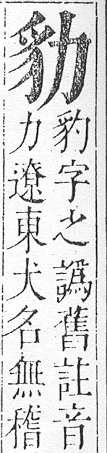 豹字之譌舊註音
力遼東犬名無稽